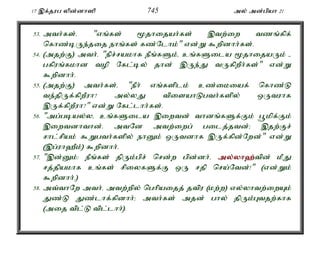 17 இக்தரப லின்னாஸி 745 அல் அன்பியா 21
53. அவர்கள், "எங்கள் மூதாதையர்கள் இவற்றை வணங்கிக்
கொண்டிருந்ததை நாங்கள் கண்டோம்" என்று கூறினார்கள்.
54. (அதற்கு) அவர், "நிச்சயமாக நீங்களும், உங்களுடைய மூதாதையரும் -
பகிரங்கமான வழி கேட்டில் தான் இருந்து வருகிறீர்கள்" என்று
கூறினார்.
55. (அதற்கு) அவர்கள், "நீர் எங்களிடம் உண்மையைக் கொண்டு
வந்திருக்கிறீரா? அல்லது விளையாடுபவர்களில் ஒருவராக
இருக்கிறீரா?" என்று கேட்டார்கள்.
56. "அப்படியல்ல, உங்களுடைய இறைவன் வானங்களுக்கும் பூமிக்கும்
இறைவனாவான். அவனே அவற்றைப் படைத்தவன்; இதற்குச்
சாட்சியம் கூறுபவர்களில் நானும் ஒருவனாக இருக்கின்றேன்" என்று
(இப்ராஹீம்) கூறினார்.
57. "இன்னும்: நீங்கள் திரும்பிச் சென்ற பின்னர், அல்லாஹ்வின் மீது
சத்தியமாக உங்கள் சிலைகளுக்கு ஒரு சதி செய்வேன்!" (என்றும்
கூறினார்.)
58. அவ்வாறே அவர், அவற்றில் பெரியதைத் தவிர (மற்ற) எல்லாவற்றையும்
துண்டு துண்டாக்கினார்; அவர்கள் அதன் பால் திரும்புவதற்காக
(அதை விட்டு விட்டார்).